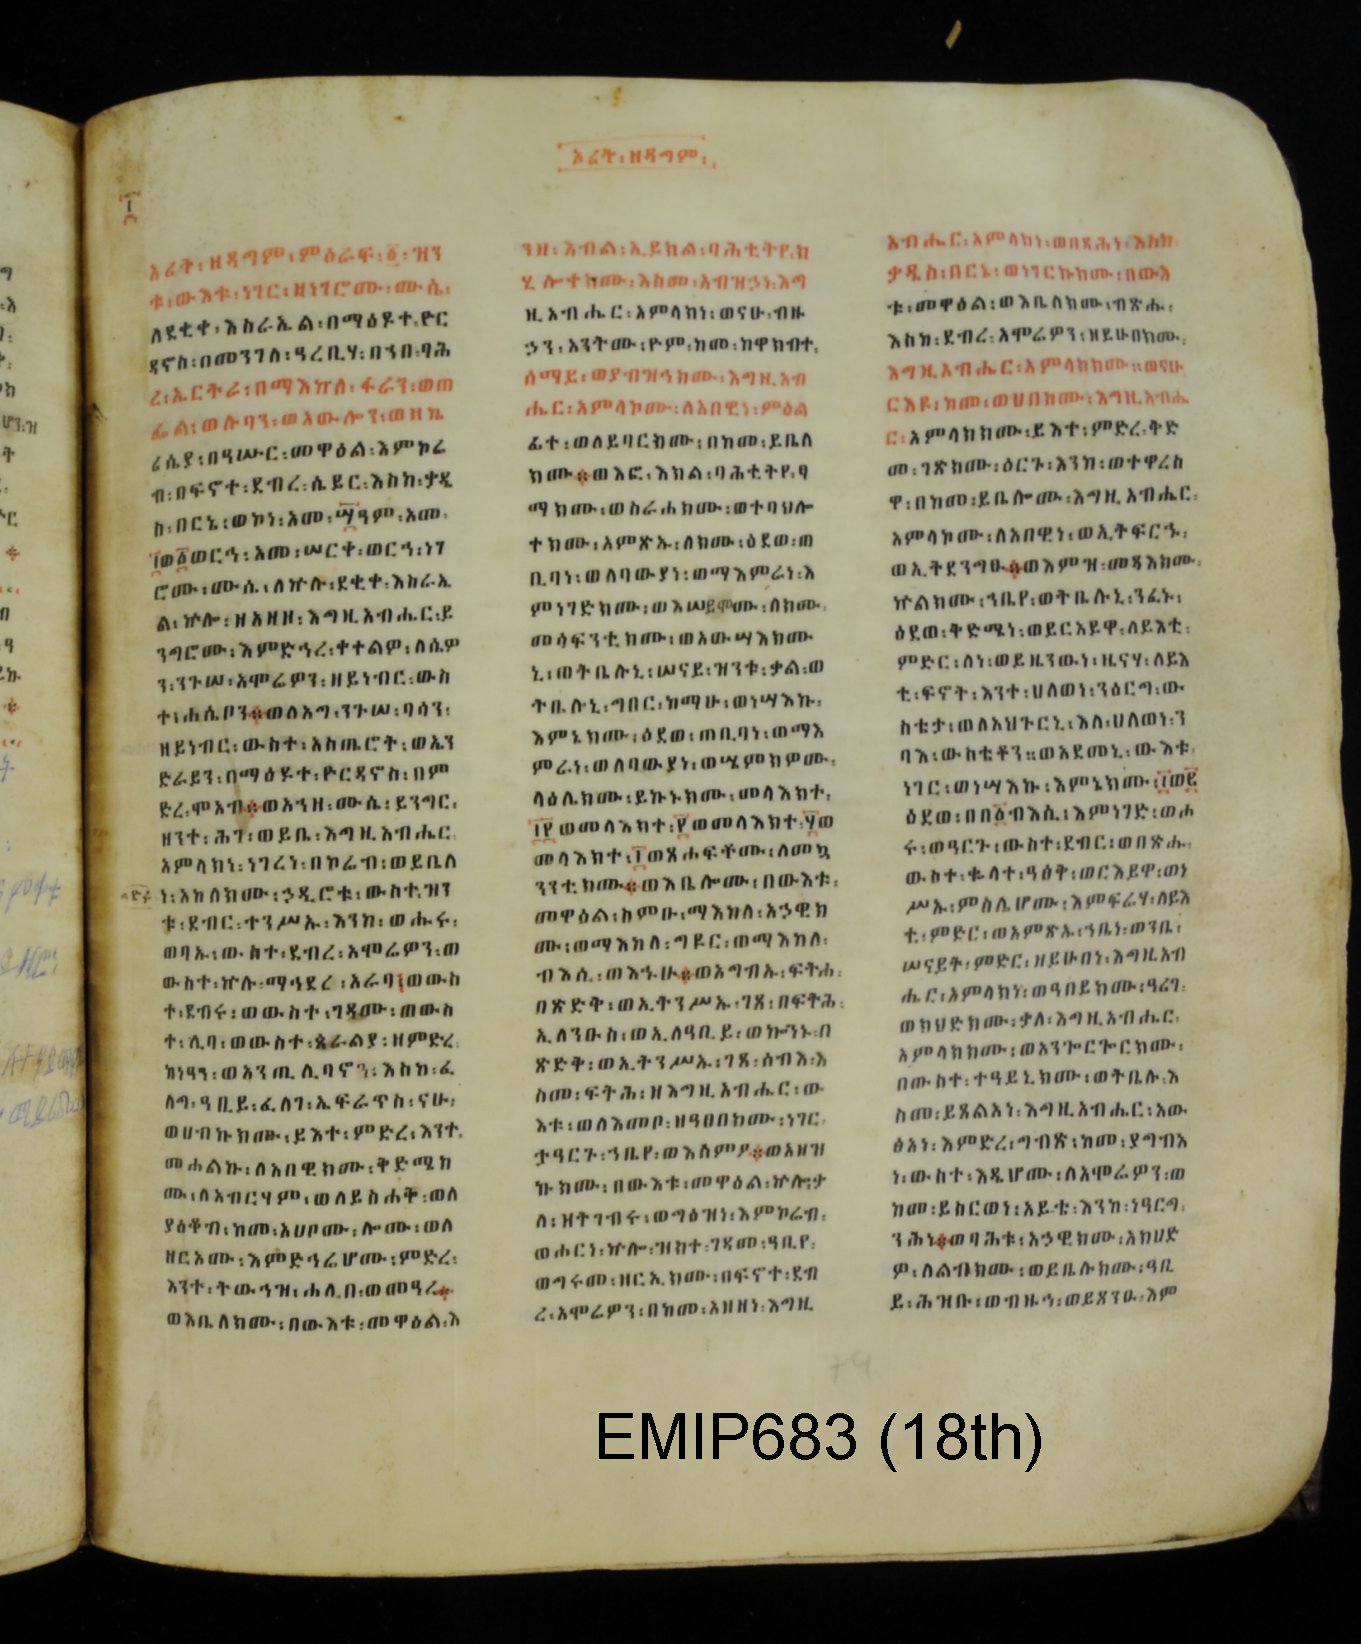 ኦሪት፡ዘዳግም፡
፲
ኦሪት፡ዘዳግም፡ምዕራፍ፡፩፡ዝን
ቱ፡ውእቱ፡ነገር፡ዘነገሮሙ፡ሙሴ፡
ለደቂቀ፡እስራኤል፡በማዕዶተ፡ዮር
ዳኖስ፡በመንገለ፡ዓረቢሃ፡በኀበ፡ባሕ
ረ፡ኤርትራ፡በማእከለ፡ፋራን፡ወጦ
ፌል፡ወሉባን፡ወአውሎን፡ወዘኬ
ሪሴያ፡በዓሡር፡መዋዕል፡እምኮሬ
ብ፡በፍኖተ፡ደብረ፡ሴይር፡እስከ፡ቃዴ
ስ፡በርኔ፡ወኮነ፡አመ፡፵ዓም፡አመ፡
፲ወ፩ወርኅ፡አመ፡ሠርቀ፡ወርኅ፡ነገ
ሮሙ፡ሙሴ፡ለኵሉ፡ደቂቀ፡እስራኤ
ል፡ኵሎ፡ዘአዘዘ፡እግዚአብሔር፡ይ
ንግሮሙ፡እምድኅረ፡ቀተልዎ፡ለሴዎ
ን፡ንጉሠ፡አሞሬዎን፡ዘይነብር፡ውስ
ተ፡ሐሴቦን፨ወለአግ፡ንጉሠ፡ባሳን፡
ዘይነብር፡ውስተ፡አስጤሮት፡ወኤን
ድራይን፡በማዕዶተ፡ዮርዳኖስ፡በም
ድረ፡ሞአብ፨ወአኀዘ፡ሙሴ፡ይንግር፡
ዘንተ፡ሕገ፡ወይቤ፡እግዚአብሔር
አምላክነ፡ነገረነ፡በኮሬብ፡ወይቤለ
ነ፡አክለክሙ፡ኃዲሮቱ፡ውስተ፡ዝን
ቱ፡ደብር፡ተንሥኡ፡እንከ፡ወሑሩ፡
ወባኡ፡ውስተ፡ደብረ፡አሞሬዎን፡ወ
ውስተ፡ኵሉ፡ማኅደረ፡አራባ፡ወውስ
ተ፡ደብሩ፡ወውስተ፡ገዳሙ፡ጠውስ
ተ፡ሊባ፡ወውስተ፡ጳራልያ፡ዘምድረ
ከነዓን፡ወአንጢሊባኖን፡እስከ፡ፈ
ለግ፡ዓቢይ፡ፈለገ፡ኤፍራጥስ፡ናሁ፡
ወሀብኩክሙ፡ይእተ፡ምድረ፡እንተ፡
መሐልኩ፡ለአበዊክሙ፡ቅድሜክ
ሙ፡ለአብርሃም፡ወለይስሐቅ፡ወለ
ያዕቆብ፡ከመ፡አሀቦሙ፡ሎሙ፡ወለ
ዘርአሙ፡እምድኅሬሆሙ፡ምድረ፡
እንተ፡ትውኅዝ፡ሐሊበ፡ወመዓረ፨
ወእቤለክሙ፡በውእቱ፡መዋዕል፡እ
ንዘ፡እብል፡ኢይክል፡ባሕቲትየ፡ክ
ሂሎተክሙ፡እስመ፡አብዝኃነ፡እግ
ዚአብሔር፡አምላክነ፡ወናሁ፡ብዙ
ኃን፡አንትሙ፡ዮም፡ከመ፡ከዋክብተ፡
ሰማይ፡ወያብዝኅክሙ፡እግዚአብ
ሔር፡አምላኮሙ፡ለአበዊነ፡ምዕል
ፊተ፡ወለይባርክሙ፡በከመ፡ይቤለ
ክሙ፨ወእፎ፡እክል፡ባሕቲትየ፡ፃ
ማክሙ፡ወስራሐክሙ፡ወተባህሎ
ተክሙ፡አምጽኡ፡ለክሙ፡ዕደወ፡ጠ
ቢባነ፡ወለባውያነ፡ወማእምራነ፡እ
ምነገድክሙ፡ወእሠይሞሙ፡ለክሙ፡
መሳፍንቲክሙ፡ወአውሣእክሙ
ኒ፡ወትቤሉኒ፡ሠናይ፡ዝንቱ፡ቃል፡ወ
ትቤሉኒ፡ግበር፡ከማሁ፡ወነሣእኩ፡
እምኔክሙ፡ዕደወ፡ጠቢባነ፡ወማእ
ምራነ፡ወለባውያነ፡ወሤምክዎሙ፡
ላዕሌክሙ፡ይኩኑክሙ፡መላእክተ፡
፲፻ወመላእክተ፡፻ወመላእክተ፡፶ወ
መላእክተ፡፲ወጸሐፍቶሙ፡ለመኳ
ንንቲክሙ፨ወእቤሎሙ፡በውእቱ፡
መዋዕል፡ስምዑ፡ማእከለ፡አኃዊክ
ሙ፡ወማእከለ፡ግዩር፡ወማእከለ፡
ብእሲ፡ወእኅሁ፨ወአግብኡ፡ፍትሐ፡
በጽድቅ፡ወኢትንሥኡ፡ገጸ፡በፍትሕ፡
ኢለንዑስ፡ወኢለዓቢይ፡ወኰንኑ፡በ
ጽድቅ፡ወኢትንሥኡ፡ገጸ፡ሰብእ፡እ
ስመ፡ፍትሕ፡ዘእግዚአብሔር፡ው
እቱ፡ወለእመቦ፡ዘዓፀበክሙ፡ነገር፡
ታዓርጉ፡ኀቤየ፡ወእሰምዖ፨ወአዘዝ
ኩክሙ፡በውእቱ፡መዋዕል፡ኵሎ፡ቃ
ለ፡ዘትገብሩ፡ወግዕዝነ፡እምኮሬብ፡
ወሖርነ፡ኵሎ፡ዝከተ፡ገዳመ፡ዓቢየ፡
ወግሩመ፡ዘርኢክሙ፡በፍኖተ፡ደብ
ረ፡አሞሬዎን፡በከመ፡አዘዘነ፡እግዚ
አብሔር፡አምላክነ፡ወበጻሕነ፡እስከ
ቃዴስ፡በርኔ፡ወነገርኩክሙ፡በውእ
ቱ፡መዋዕል፡ወእቤለክሙ፡ብጽሑ፡
እስከ፡ደብረ፡አሞሬዎን፡ዘይሁበክሙ፡
እግዚአብሔር፡አምላክክሙ፡፡ወናሁ
ርእዩ፡ከመ፡ወሀበክሙ፡እግዚአብሔ
ር፡አምላክክሙ፡ይእተ፡ምድረ፡ቅድ
መ፡ገጽክሙ፡ዕርጉ፡እንከ፡ወተዋረስ
ዋ፡በከመ፡ይቤሎሙ፡እግዚአብሔር፡
አምላኮሙ፡ለአበዊነ፡ወኢትፍርኁ፡
ወኢትደንግፁ፨ወእምዝ፡መጻእክሙ፡
ኵልክሙ፡ኀቤየ፡ወትቤሉኒ፡ንፈኑ፡
ዕደወ፡ቅድሜነ፡ወይርአይዋ፡ለይእቲ፡
ምድር፡ለነ፡ወይዜንውነ፡ዜናሃ፡ለይእ
ቲ፡ፍኖት፡እንተ፡ሀለወነ፡ንዕርግ፡ው
ስቴታ፡ወለአህጉርኒ፡እለ፡ሀለወነ፡ን
ባእ፡ውስቴቶን፡፡ወአደመኒ፡ውእቱ
ነገር፡ወነሣእኩ፡እምኔክሙ፡፲ወ፪
ዕደወ፡በበ፩ብእሲ፡እምነገድ፡ወሖ
ሩ፡ወዓርጉ፡ውስተ፡ደብር፡ወበጽሑ፡
ውስተ፡ቈላተ፡ዓፅቅ፡ወርእይዋ፡ወነ
ሥኡ፡ምስሌሆሙ፡እምፍሬሃ፡ለይእ
ቲ፡ምድር፡ወአምጽኡ፡ኀቤነ፡ወንቤ፡
ሠናይት፡ምድር፡ዘይሁበነ፡እግዚአብ
ሔር፡አምላክነ፡ወዓበይክሙ፡ዓሪገ፡
ወክህድክሙ፡ቃለ፡እግዚአብሔር፡
አምላክክሙ፡ወአንጐርጐርክሙ፡
በውስተ፡ተዓይኒክሙ፡ወትቤሉ፡እ
ስመ፡ይጸልአነ፡እግዚአብሔር፡አው
ፅአነ፡እምድረ፡ግብጽ፡ከመ፡ያግብአ
ነ፡ውስተ፡እዴሆሙ፡ለአሞሬዎን፡ወ
ከመ፡ይሰርወነ፡አይቴ፡እንከ፡ነዓርግ፡
ንሕነ፨ወባሕቱ፡አኃዊክሙ፡አክሀድ
ዎ፡ለልብክሙ፡ወይቤሉክሙ፡ዓቢ
ይ፡ሕዝቡ፡ወብዙኅ፡ወይጸንዑ፡እም
EMIP683 (18th)